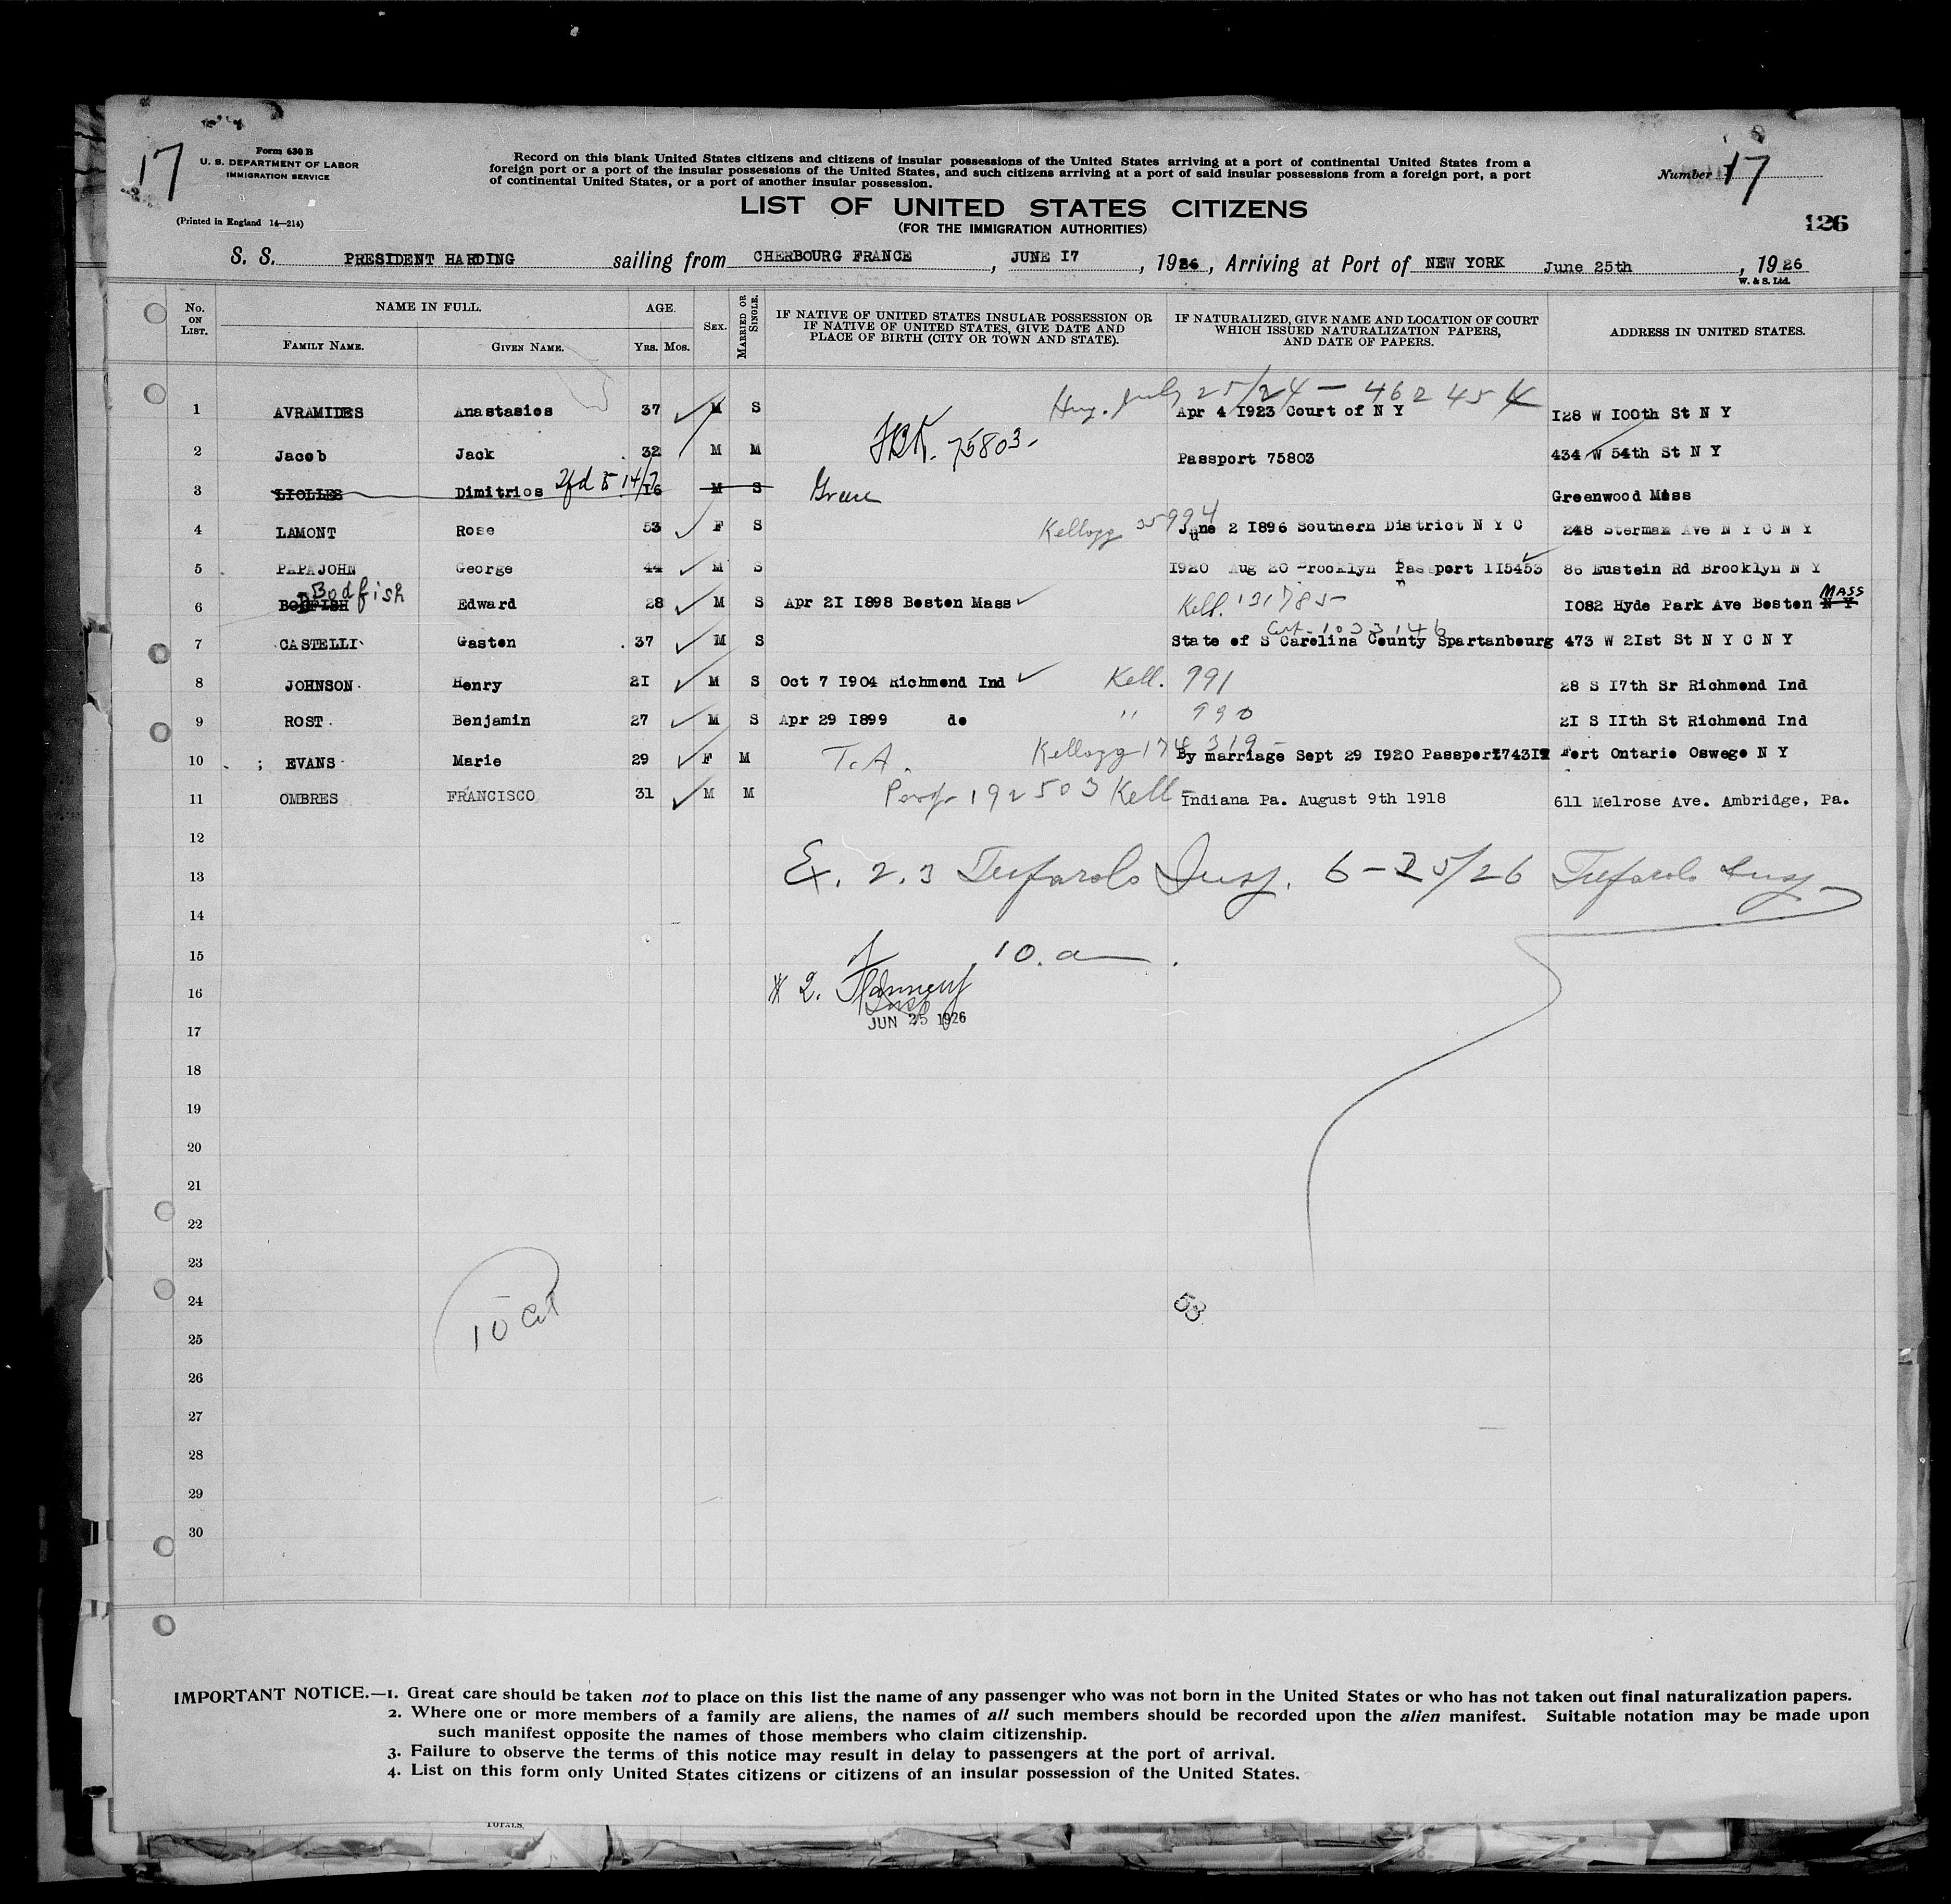 17
Form 630 B
U. S. DEPARTMENT OF LABOR
IMMIGRATION SERVICE
(Printed in England 14—214)
Record on this blank United States citizens and citizens of insular possessions of the United States arriving at a port of continental United States from a
foreign port or a port of the insular possessions of the United States, and such citizens arriving at a port of said insular possessions from a foreign port, a port
of continental United States, or a port of another insular possession.
Number 17
LIST OF UNITED STATES CITIZENS
(FOR THE IMMIGRATION AUTHORITIES)
126
S. S. PRESIDENT HARDING sailing from CHERBOURG FRANCE, JUNE I7, 1926, Arriving at Port of NEW YORK June 25th, 1926
W. & S. Ltd.
No. ON LIST. NAME IN FULL. FAMILY NAME. GIVEN NAME. AGE. YRS. MOS. SEX. MARRIED OR SINGLE. IF NATIVE OF UNITED STATES INSULAR POSSESSION OR IF NATIVE OF UNITED STATES, GIVE DATE AND PLACE OF BIRTH (CITY OR TOWN AND STATE). IF NATURALIZED, GIVE NAME AND LOCATION OF COURT WHICH ISSUED NATURALIZATION PAPERS, AND DATE OF PAPERS. ADDRESS IN UNITED STATES.
July 25/24 — 462454
1 AVRAMIDES Anastasios 37 M S Apr 4 I923 Court of N Y I28 W I00th St N Y
2 Jacob Jack 32 M M 75803 Passport 75803 434 W 54th St N Y
3 LIOLLES Dimitrios I6 M S Greece Greenwood Mass
4 LAMONT Rose 53 F S Kellogg 35994 June 2 I896 Southern District N Y C 248 Sterman Ave N Y C N Y
5 PAPAJOHN George 44 M S I920 Aug 20 Brooklyn Passport II5453 86 Eustein Rd Brooklyn N Y
Bodfish
6 BODFISH Edward 28 M S Apr 2I I898 Boston Mass Kell. 131785 I082 Hyde Park Ave Boston N Y MASS
Cert. 1033146
7 CASTELLI Gaston 37 M S State of S Carolina County Spartanbourg 473 W 2Ist St N Y C N Y
8 JOHNSON Henry 2I M S Oct 7 I904 Richmond Ind Kell. 991 28 S I7th Sr Richmond Ind
9 ROST Benjamin 27 M S Apr 29 I899 do " 990 2I S IIth St Richmond Ind
10 EVANS Marie 29 F M T.A. Kellogg 174319 By marriage Sept 29 I920 Passport I743I9 Fort Ontario Oswego N Y
11 OMBRES FRANCISCO 31 M M 192503 Kell Indiana Pa. August 9th 1918 611 Melrose Ave. Ambridge, Pa.
12
13 Ex. 2.3 Tufarolo Insp. 6-25/26 Tufarolo Insp
14
15 10. a
16 # 2. Flannery Insp
JUN 25 1926
17
18
19
20
21
22
23
24 53
25 10 cit
26
27
28
29
30
IMPORTANT NOTICE.—1. Great care should be taken not to place on this list the name of any passenger who was not born in the United States or who has not taken out final naturalization papers.
2. Where one or more members of a family are aliens, the names of all such members should be recorded upon the alien manifest. Suitable notation may be made upon
such manifest opposite the names of those members who claim citizenship.
3. Failure to observe the terms of this notice may result in delay to passengers at the port of arrival.
4. List on this form only United States citizens or citizens of an insular possession of the United States.
TOTALS.